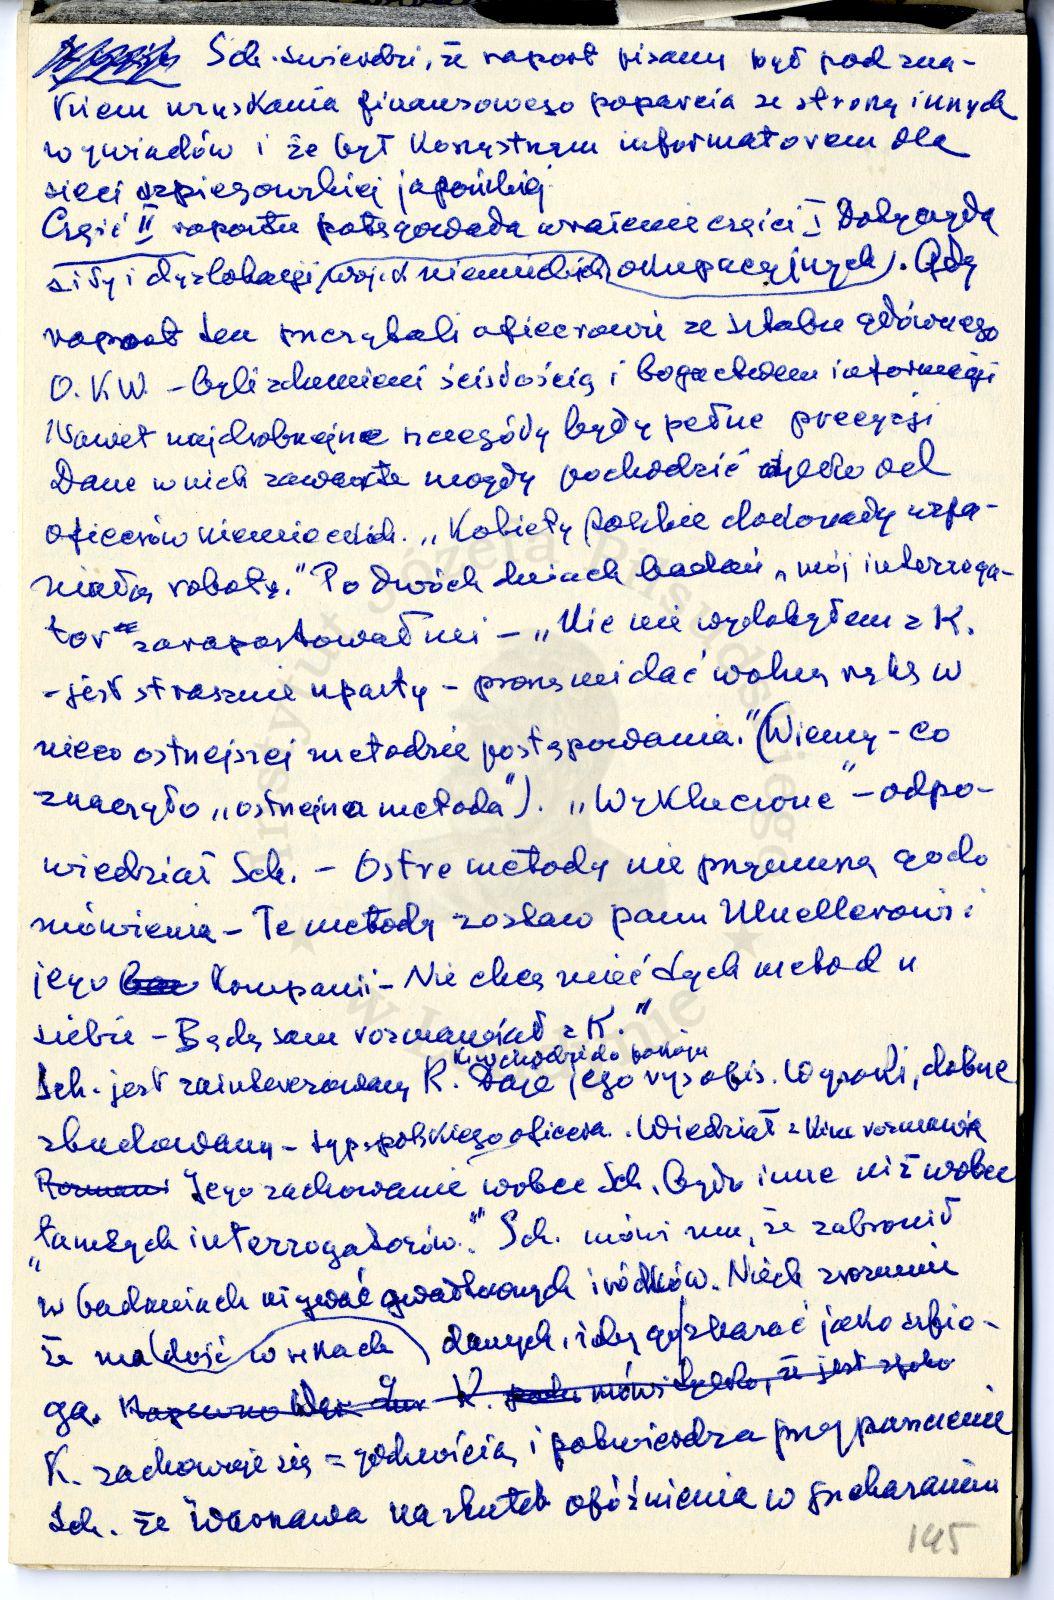 Sch. twierdzi, że raport pisany był pod zna-
kiem uzyskania finansowego poparcia ze strony innych
wywiadów i że był korzystnym informatorem dla
sieci szpiegowskiej japońskiej
Część II raportu potęgowała wrażenie części I Dotyczyła
siły i dyzlokacji wojsk niemieckich okupacyjnych. Gdy
raport ten przeczytali oficerowie ze sztabu głównego
O.K.W. - byli zdumieni ścisłością i bogactwem informacji
Nawet najdrobniejsze szczegóły były pełne precyzji
Dane w nich zawarte mogły pochodzić tylko od
oficerów niemieckich. „Kobiety polskie dokonały wspa-
niałą robotę." Po dwóch dniach badań „mój interroga-
tor" zaraportował mi - „Nic nie wydobyłem z K.
- jest strasznie uparty - proszę mi dać wolną rękę w
nieco ostrzejszej metodzie postępowania." (Wiemy - co
znaczyło „ostrzejsza metoda"). „Wykluczone" - odpo-
wiedział Sch. - Ostre metody nie przymuszą go do
mówienia - Te metody zostaw panu Muellerowi i
jego kompanii - Nie chcę mieć tych metod u
siebie - Będę sam rozmawiał z K."
K. wchodzi do pokoju
Sch. jest zainteresowany K. Daje jego rysopis. Wysoki, dobrze
zbudowany - typ polskiego oficera. Wiedział z kim rozmawia
Jego zachowanie wobec Sch. było inne niż wobec
tamtych interrogatorów." Sch. mówi mu, że zabronił
"w badaniach używać gwałtownych środków. Niech zrozumie
że ma dość w rękach danych, żeby go skarać jako szpie-
ga. K. mówi tylko, że jest
K. zachowuje się z godnością i potwierdza przypuszczenie
Sch. że Warszawa na skutek opóźnienia w
145
Instytut Józefa Piłsudskiego
w Londynie